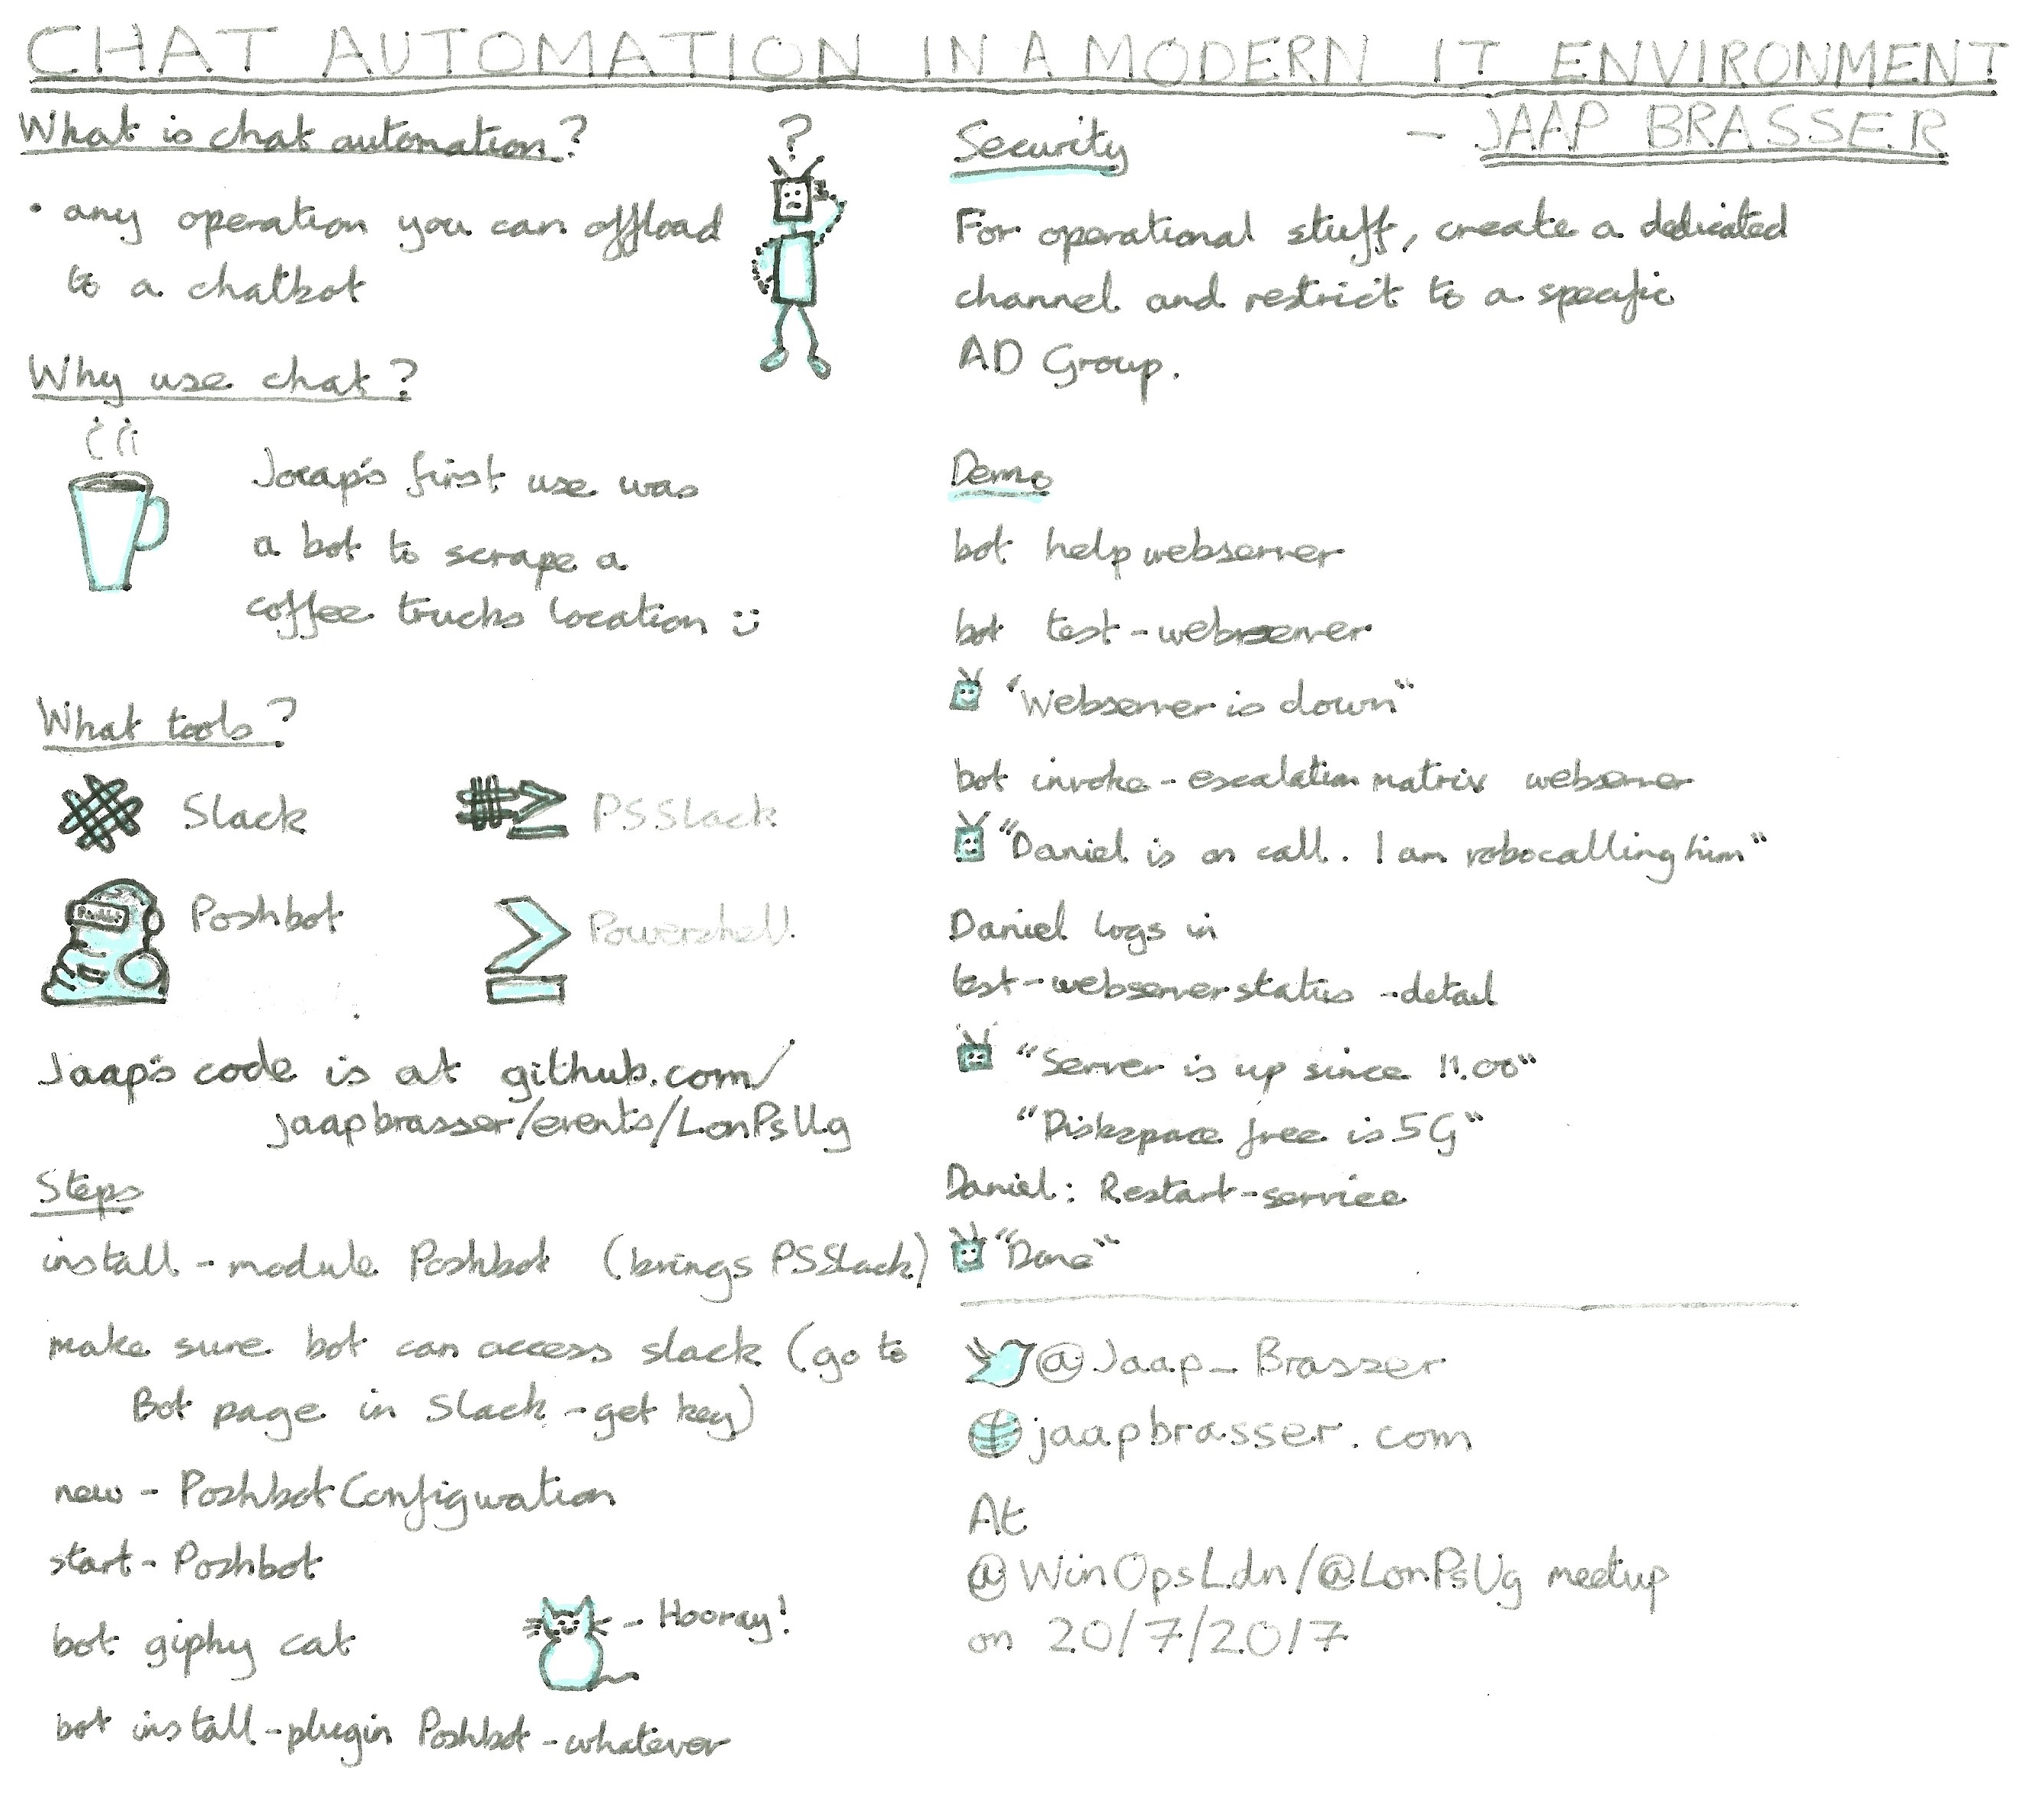 CHAT AUTOMATION IN A MODERN IT ENVIRONMENT
- JAAP BRASSER
What is chat automation?
• any operation you can offload
to a chatbot
?
Why use chat?
Jaap's first use was
a bot to scrape a
coffee trucks location :)
What tools?
Slack
PSSlack
Poshbot
Powershell
Jaap's code is at github.com/
jaapbrasser/events/LonPsUg
Steps
install-module Poshbot (brings PSSlack)
make sure bot can access slack (go to
Bot page in Slack - get key)
new-PoshbotConfiguration
start-Poshbot
bot giphy cat
- Hooray!
bot install-plugin Poshbot-whatever
Security
For operational stuff, create a dedicated
channel and restrict to a specific
AD Group.
Demo
bot help webserver
bot test-webserver
"Webserver is down"
bot invoke-escalation matrix webserver
"Daniel is on call. I am robocalling him"
Daniel logs in
test-webserverstatus -detail
"Server is up since 11.00"
"Diskspace free is 5G"
Daniel: Restart-service
"Done"
@Jaap_Brasser
jaapbrasser.com
At
@WinOpsLdn/@LonPsUg meetup
on 20/7/2017